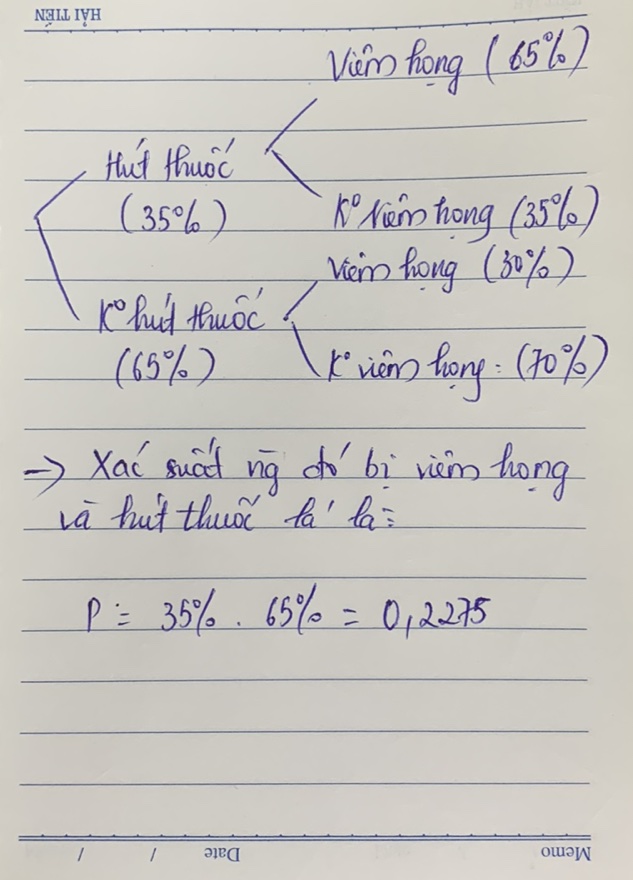 HẢI TIẾN
Viêm họng (65%)
Hút thuốc
(35%)
K° viêm họng (35%)
Viêm họng (30%)
K° hút thuốc
(65%)
K° viêm họng: (70%)
→ Xác suất ng đó bị viêm họng
và hút thuốc lá là:
P = 35% . 65% = 0,2275
Memo Date / /